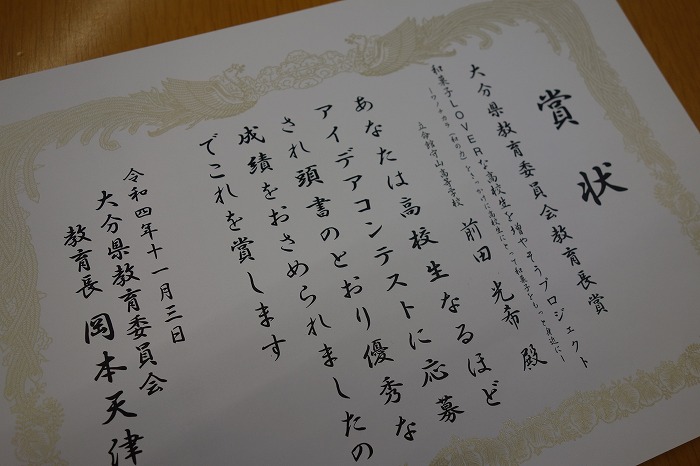 賞状
大分県教育委員会教育長賞
和菓子LOVERな高校生を増やそうプロジェクト
立命館守山高等学校
前田 光希 殿
あなたは高校生なるほど
アイデアコンテストに応募
され頭書のとおり優秀な
成績をおさめられましたの
でこれを賞します
令和四年十一月三日
大分県教育委員会
教育長 岡本天津